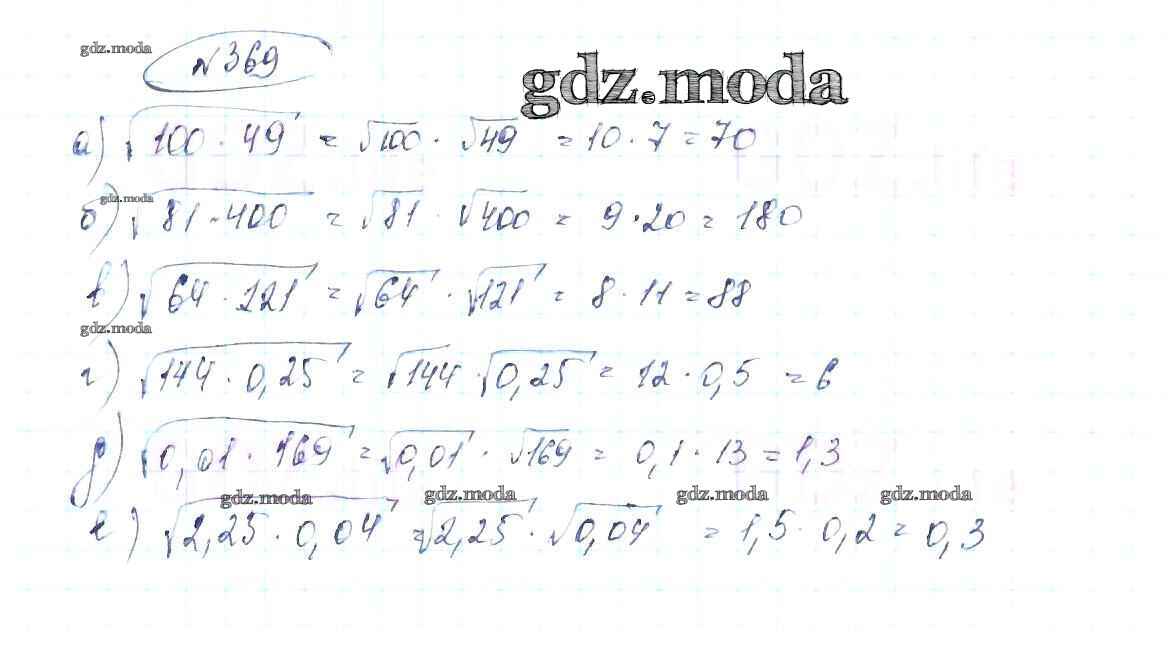 gdz.moda
№369
gdz.moda
а) √100 · 49 = √100 · √49 = 10 · 7 = 70
gdz.moda
б) √81 · 400 = √81 · √400 = 9 · 20 = 180
в) √64 · 121 = √64 · √121 = 8 · 11 = 88
gdz.moda
г) √144 · 0,25 = √144 · √0,25 = 12 · 0,5 = 6
д) √0,01 · 169 = √0,01 · √169 = 0,1 · 13 = 1,3
gdz.moda gdz.moda gdz.moda gdz.moda
е) √2,25 · 0,04 = √2,25 · √0,04 = 1,5 · 0,2 = 0,3